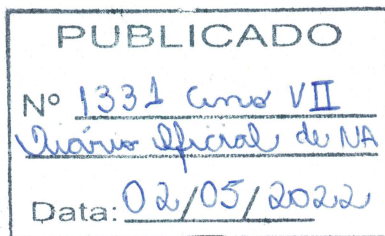 PUBLICADO
Nº 1331 Ano VII
Diário Oficial de NA
Data: 02/05/2022